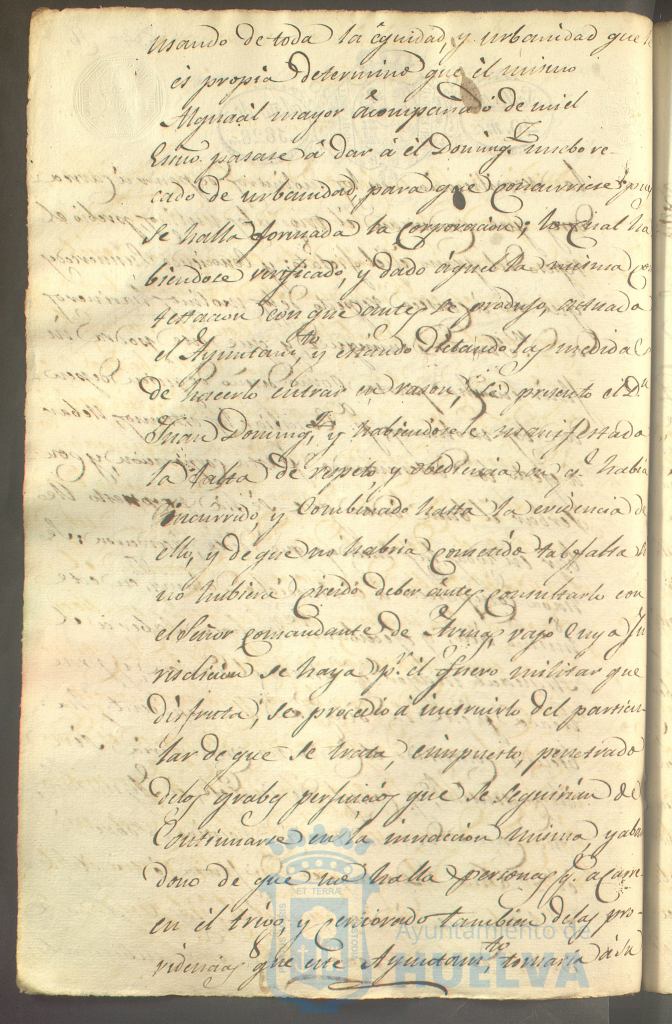 usando de toda la equidad, y urbanidad que le
es propia determinó que el mismo
Alguacil mayor acompañado de mi el
Essno. pasase á dar á el Doming.z nuebo re-
cado de urbanidad, para que concurriese, pues
se halla formada la corporacion; lo cual ha
biendose verificado, y dado aquel la misma con
testacion con que antes se produjo, actuado
el Ayuntam.to, y estando debando las medidas
de hacerlo entrar en rason, se presento el D.n
Juan Doming.z, y habiendosele manifestado
la falta de respeto y obediencia en q.e habia
incurrido, y combencido hasta la evidencia de
ello, y de que no habria cometido tal falta si
no hubiera creido deber antes consultarlo con
el Señor comandante de Arm.s, vajo cuya Ju
risdicion se haya p.r el fuero militar que
disfruta, se procedió á instruirlo del particu-
lar de que se trata, é impuesto, penetrado
delos grabes perjuicios que se seguirian de
Continuarse en la inaccion misma, y abo
dono de que no halla personas q.e acarr
en el trigo, y cerciorado tambien delas pro-
videncias que este Ayuntam.to tomaria á su
Ayuntamiento de
HUELVA